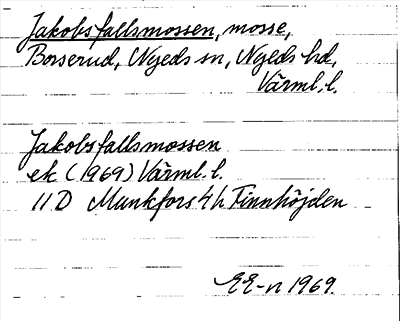 Jakobsfallsmossen, mosse,
Borserud, Nyeds sn, Nyeds hd,
Värml. l.
Jakobsfallsmossen
ek (1969) Värml. l.
11 D Munkfors 4 h Finnhöjden
EE-n 1969.